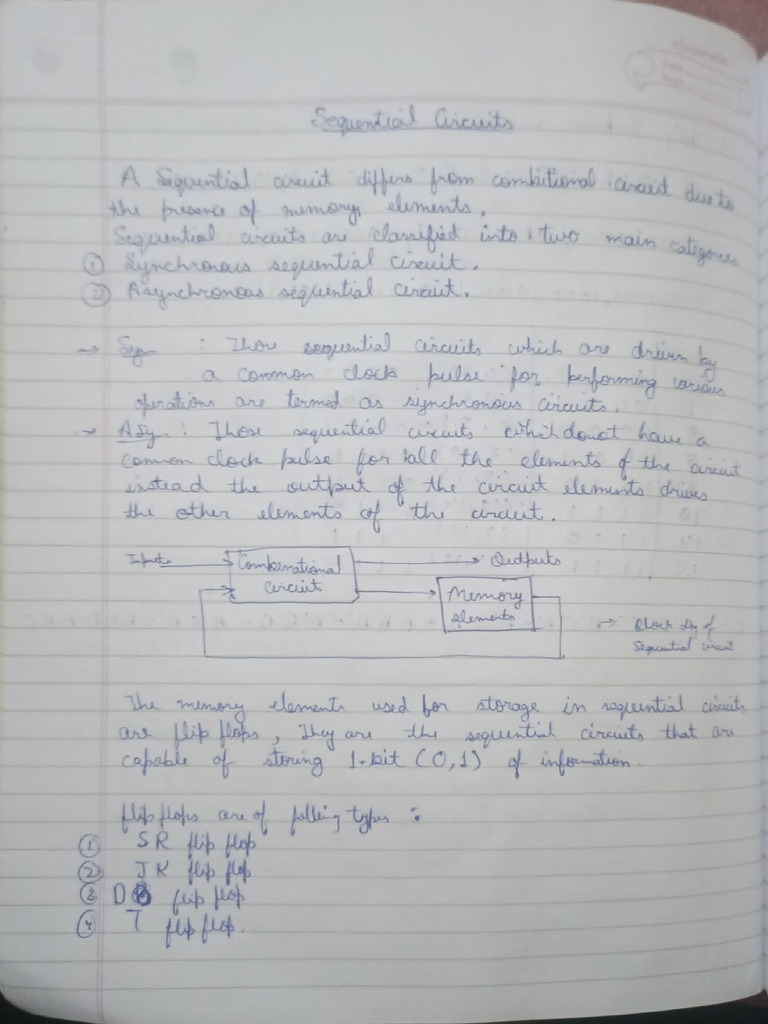 Sequential Circuits
A Sequential circuit differs from combitional circuit due to
the presence of memory elements.
Sequential circuits are classified into two main categories
① Synchronous sequential circuit.
② Asynchronous sequential circuit.
→ Syn : Those sequential circuits which are driven by
a common clock pulse for performing various
operations are termed as synchronous circuits.
→ ASyn : Those sequential circuits which donot have a
common clock pulse for all the elements of the circuit
instead the output of the circuit elements drives
the other elements of the circuit.
Inputs Combinational Outputs
circuit
Memory
elements
→ Block dg of
Sequential circuit
The memory elements used for storage in sequential circuits
are flip flops, They are the sequential circuits that are
capable of storing 1-bit (0,1) of information.
flip flops are of types :
① SR flip flop
② JK flip flop
③ D flip flop
④ T flip flop.